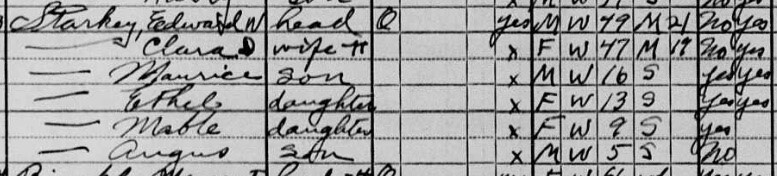 Starkey, Edward W head O yes M W 49 M 21 No yes
— Clara D wife H x F W 47 M 19 No yes
— Maurice son x M W 16 S yes yes
— Ethel daughter x F W 13 S yes yes
— Mable daughter x F W 9 S yes
— Angus son x M W 5 S No